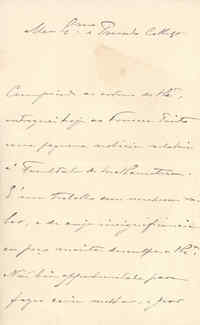 Meu Ex.mo e Presado Collega
Cumprindo as ordens de V. Ex.ª,
entreguei hoje ao
uma pequena noticia relativa
á Faculdade de Mathematica.
É um trabalho sem nenhum va-
lor, e de cuja insignificancia
eu peço muita desculpa a V. Ex.ª
Não tive opportunidade para
fazer coisa melhor, e por